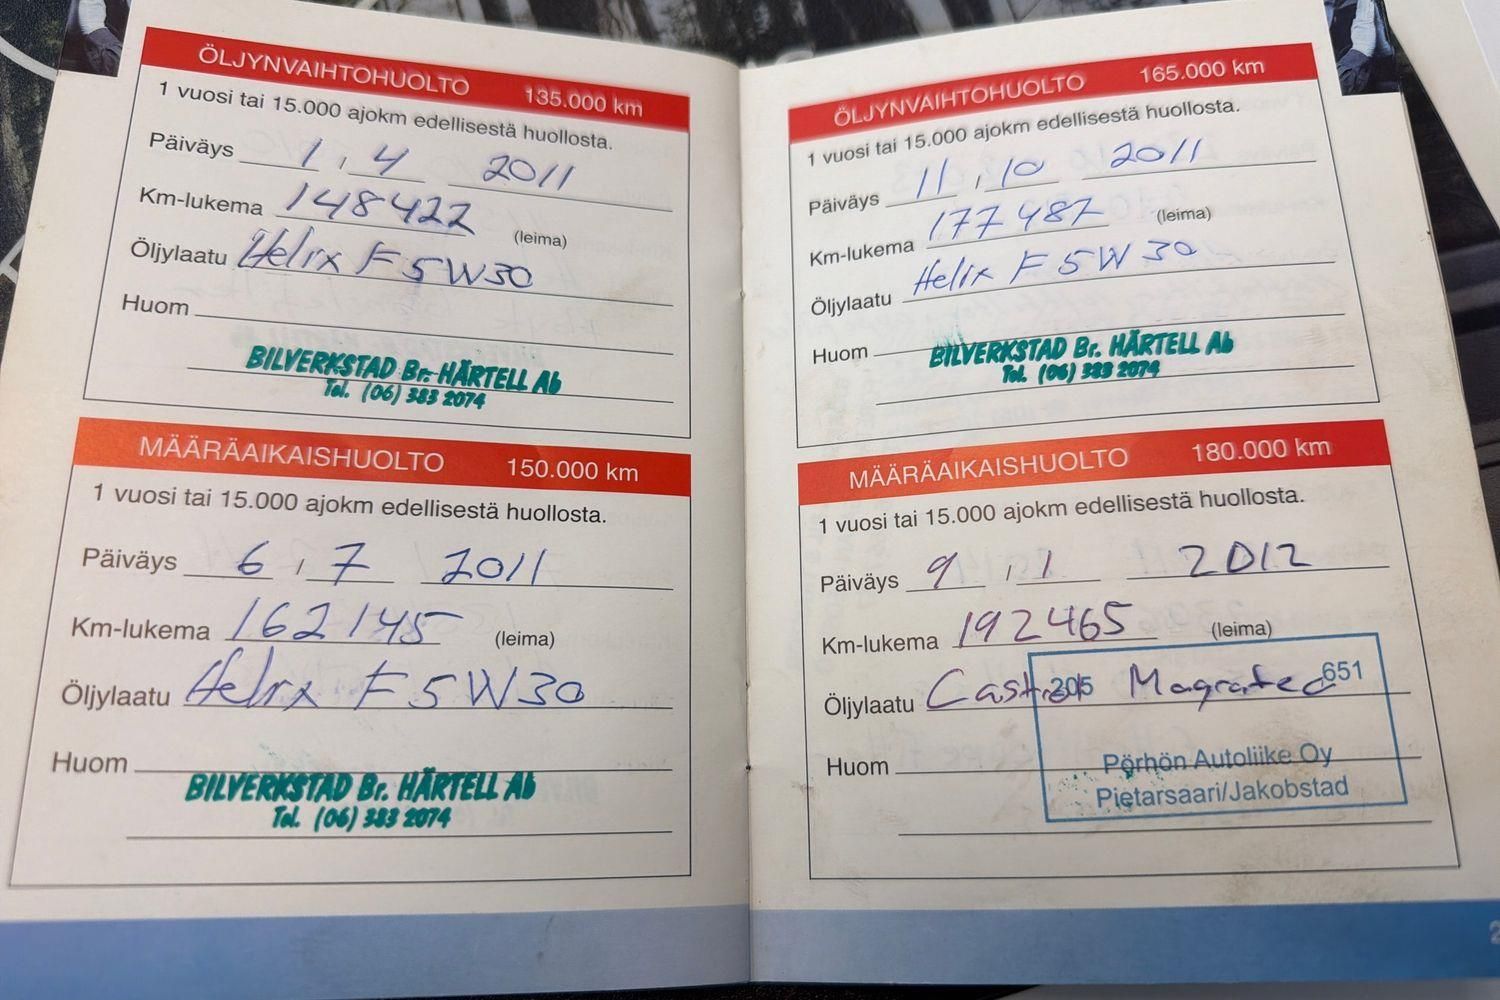 ÖLJYNVAIHTOHUOLTO 135.000 km
1 vuosi tai 15.000 ajokm edellisestä huollosta.
Päiväys 1 . 4 2011
Km-lukema 148422 (leima)
Öljylaatu Helix F 5W30
Huom
BILVERKSTAD Br. HÄRTELL Ab
Tel. (06) 383 2074
MÄÄRÄAIKAISHUOLTO 150.000 km
1 vuosi tai 15.000 ajokm edellisestä huollosta.
Päiväys 6 . 7 2011
Km-lukema 162145 (leima)
Öljylaatu Helix F 5W30
Huom
BILVERKSTAD Br. HÄRTELL Ab
Tel. (06) 383 2074
ÖLJYNVAIHTOHUOLTO 165.000 km
1 vuosi tai 15.000 ajokm edellisestä huollosta.
Päiväys 11 . 10 2011
Km-lukema 177487 (leima)
Öljylaatu Helix F 5W30
Huom
BILVERKSTAD Br. HÄRTELL Ab
Tel. (06) 383 2074
MÄÄRÄAIKAISHUOLTO 180.000 km
1 vuosi tai 15.000 ajokm edellisestä huollosta.
Päiväys 9 . 1 2012
Km-lukema 192465 (leima)
Öljylaatu Castrol Magnatec
205 651
Huom
Pörhön Autoliike Oy
Pietarsaari/Jakobstad